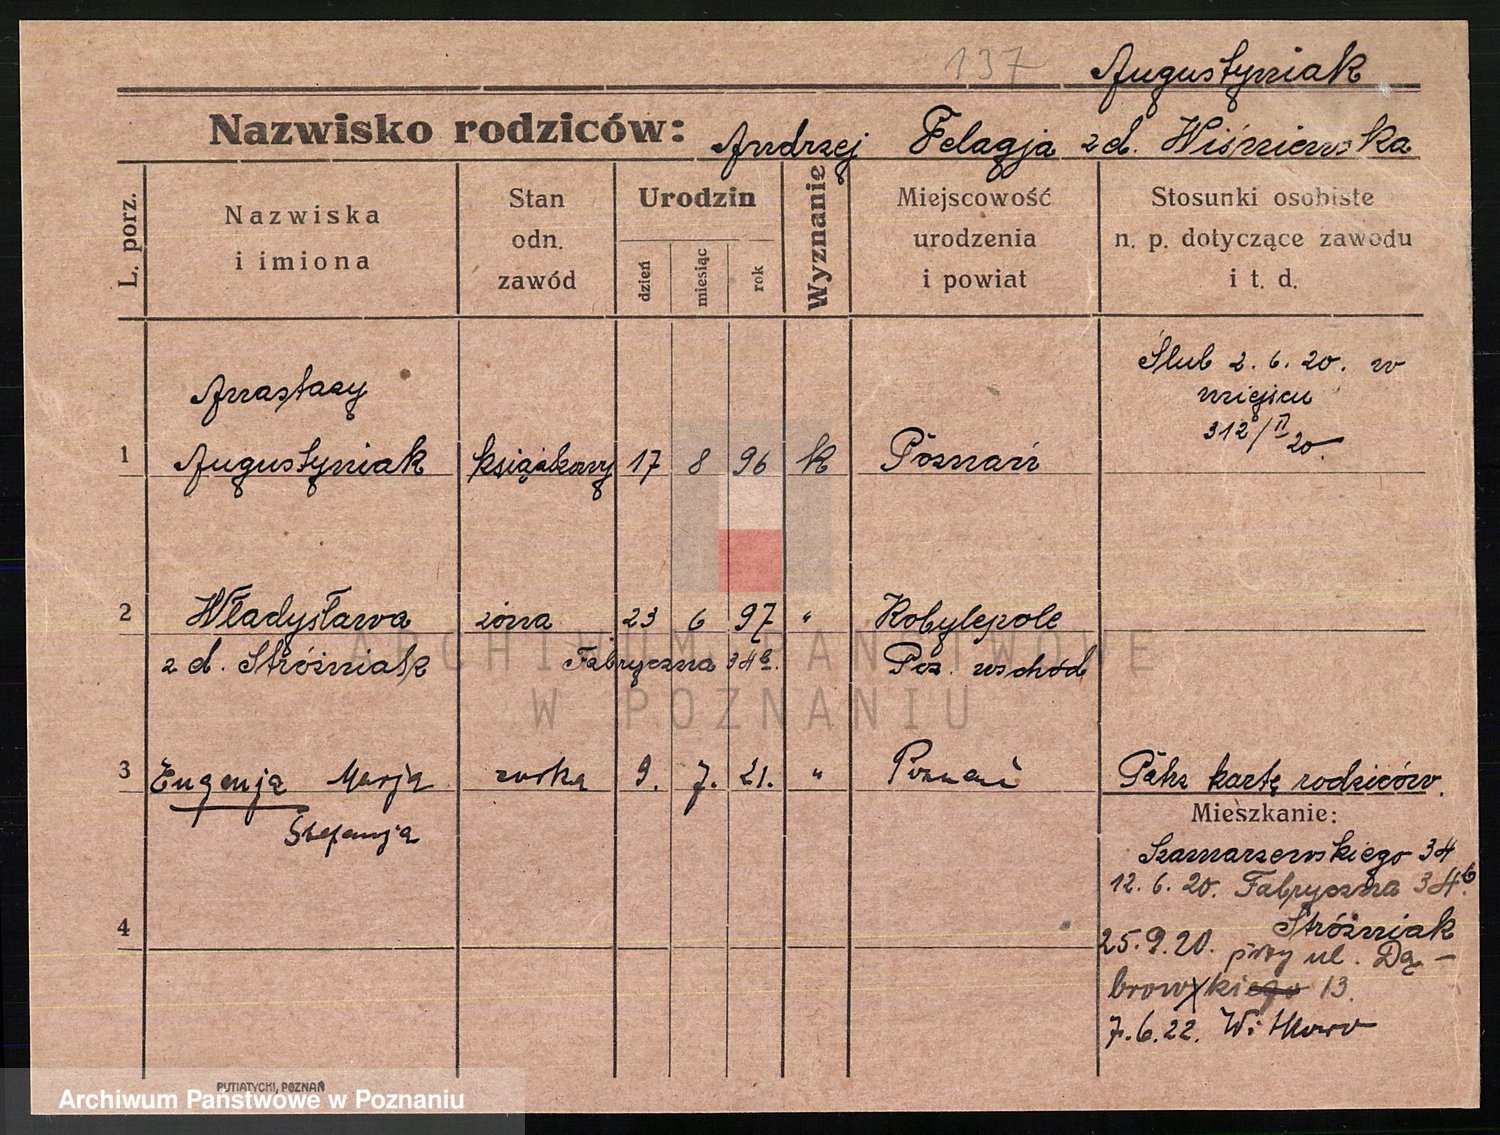 137 Augustyniak
Nazwisko rodziców: Andrzej Pelagja z d. Wiśniewska
L. porz.
Nazwiska
i imiona
Stan
odn.
zawód
Urodzin
dzień
miesiąc
rok
Wyznanie
Miejscowość
urodzenia
i powiat
Stosunki osobiste
n. p. dotyczące zawodu
i t. d.
Anastazy
1 Augustyniak książkowy 17 8 96 k Poznań
Ślub 2.6.20. w
miejscu
312/II 20
2 Władysława żona 23 6 97 " Kobylepole
z d. Stróżniak Fabryczna 34b. Poz. wschód
3 Eugenja Marja córka 9. 7. 21. " Poznań Patrz kartę rodziców.
Stefanja
Mieszkanie:
Szamarzewskiego 34
12.6.20. Fabryczna 34b.
4 Stróżniak
25.9.20. przy ul. Dą-
browskiego 13.
7.6.22. Witkowo
PUTIATYCKI, POZNAŃ
ARCHIWUM PAŃSTWOWE
W POZNANIU
Archiwum Państwowe w Poznaniu